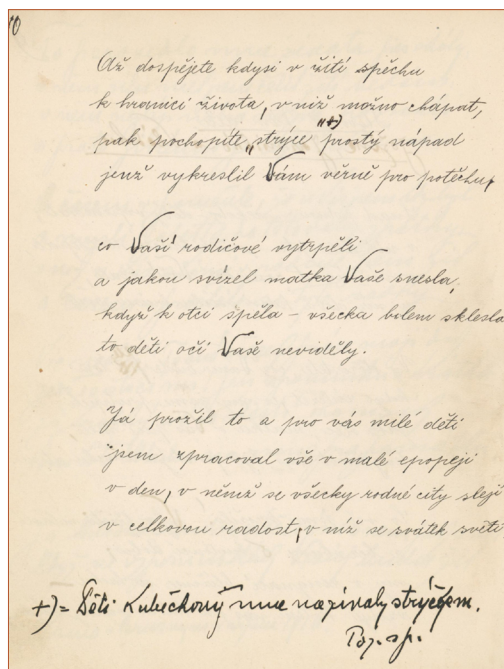 10
Až dospějete kdysi v žití spěchu
k hranici života, v níž možno chápat,
pak pochopíte „strýce" +) prostý nápad
jenž vykreslil Vám věrně pro potěchu,
co Vaší rodičové vytrpěli
a jakou svízel matka Vaše snesla,
když k otci spěla – všecka bolem sklesla
to děti oči Vaše neviděly.
Já prožil to a pro vás milé děti
jsem zpracoval vše v malé epopeji
v den, v němž se všecky rodné city slejí
v celkovou radost, v níž se svátek světí
+) = Děti Kubečkovy mne nazívaly strýčkem.
Poz. sp.